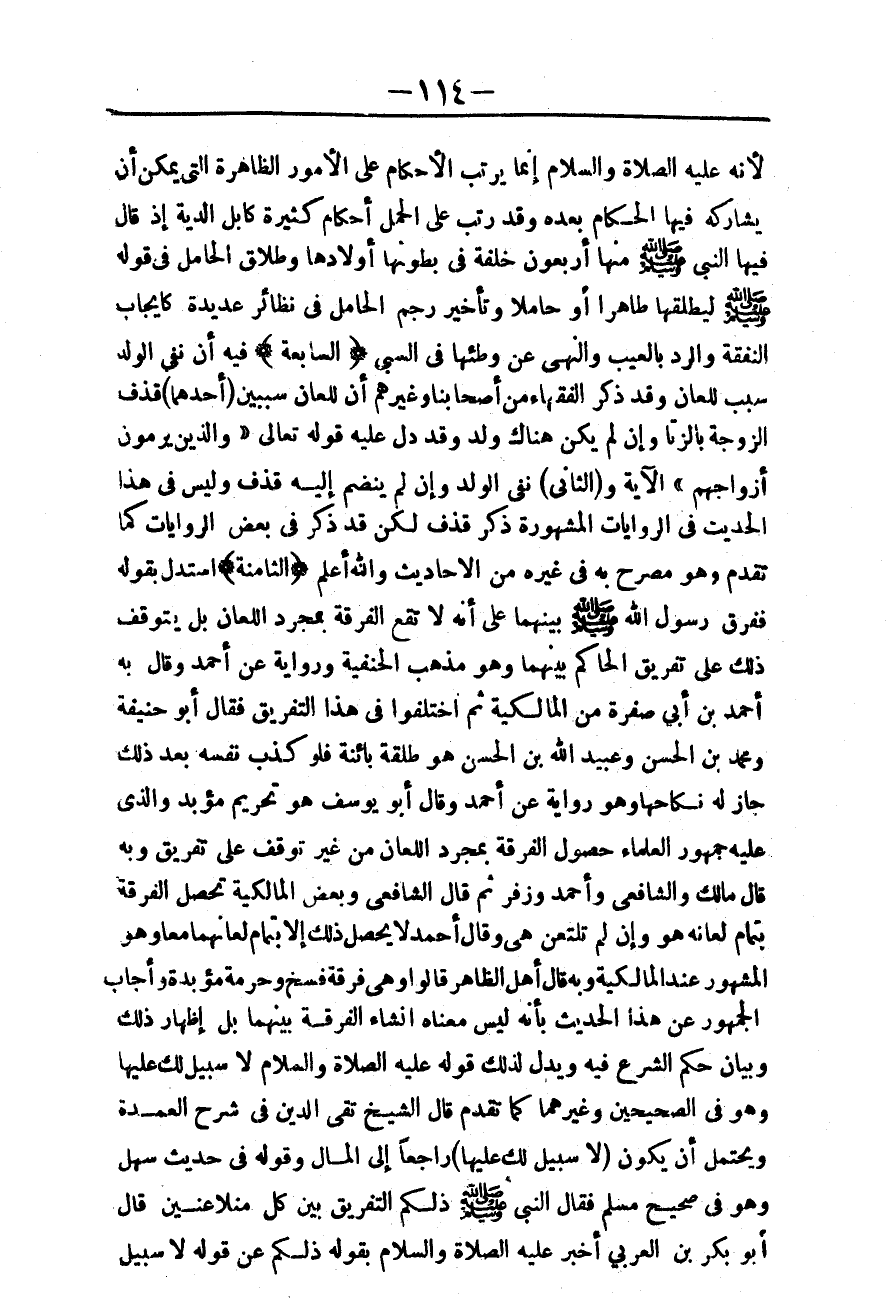 —١١٤—
لأنه عليه الصلاة والسلام إنما يرتب الأحكام على الأمور الظاهرة التى يمكن أن
يشاركه فيها الحكام بعده وقد رتب على الحمل أحكام كثيرة كابل الدية إذ قال
فيها النبي ﷺ منها أربعون خلفة فى بطونها أولادها وطلاق الحامل فى قوله
ﷺ ليطلقها طاهرا أو حاملا وتأخير رجم الحامل فى نظائر عديدة كايجاب
النفقة والرد بالعيب والنهى عن وطئها فى السبي ﴿ السابعة ﴾ فيه أن نفي الولد
سبب للعان وقد ذكر الفقهاء من أصحابنا وغيرهم أن للعان سببين (أحدهما) قذف
الزوجة بالزنا وإن لم يكن هناك ولد وقد دل عليه قوله تعالى « والذين يرمون
أزواجهم » الآية و (الثانى) نفى الولد وإن لم ينضم إليه قذف وليس فى هذا
الحديث فى الروايات المشهورة ذكر قذف لكن قد ذكر فى بعض الروايات كما
تقدم وهو مصرح به فى غيره من الاحاديث والله أعلم ﴿الثامنة﴾ استدل بقوله
ففرق رسول الله ﷺ بينهما على أنه لا تقع الفرقة بمجرد اللعان بل يتوقف
ذلك على تفريق الحاكم بينهما وهو مذهب الحنفية ورواية عن أحمد وقال به
أحمد بن أبي صفرة من المالكية ثم اختلفوا فى هذا التفريق فقال أبو حنيفة
ومحمد بن الحسن وعبيد الله بن الحسن هو طلقة بائنة فلو كذب نفسه بعد ذلك
جاز له نكاحها وهو رواية عن أحمد وقال أبو يوسف هو تحريم مؤبد والذى
عليه جمهور العلماء حصول الفرقة بمجرد اللعان من غير توقف على تفريق وبه
قال مالك والشافعى وأحمد وزفر ثم قال الشافعى وبعض المالكية تحصل الفرقة
بتمام لعانه هو وإن لم تلتعن هى وقال أحمد لا يحصل ذلك إلا بتمام لعانهما معا وهو
المشهور عند المالكية وبه قال أهل الظاهر قالوا وهى فرقة فسخ وحرمة مؤبدة وأجاب
الجمهور عن هذا الحديث بأنه ليس معناه انشاء الفرقة بينهما بل إظهار ذلك
وبيان حكم الشرع فيه ويدل لذلك قوله عليه الصلاة والسلام لا سبيل لك عليها
وهو فى الصحيحين وغيرهما كما تقدم قال الشيخ تقى الدين فى شرح العمدة
ويحتمل أن يكون (لا سبيل لك عليها) راجعاً إلى المال وقوله فى حديث سهل
وهو فى صحيح مسلم فقال النبي ﷺ ذلكم التفريق بين كل متلاعنين قال
أبو بكر بن العربي أخبر عليه الصلاة والسلام بقوله ذلكم عن قوله لا سبيل